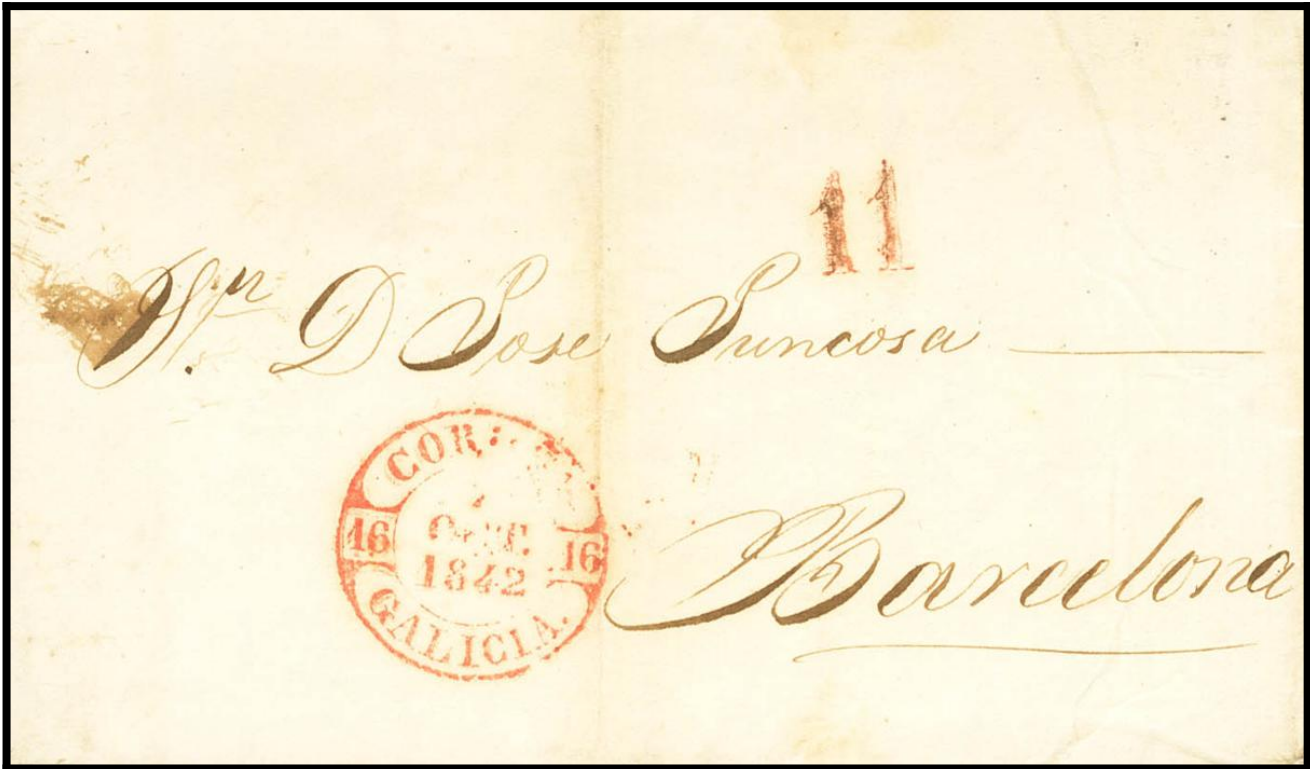 11
Sr. D Jose Juncosa
16 16
1842
GALICIA.
Barcelona